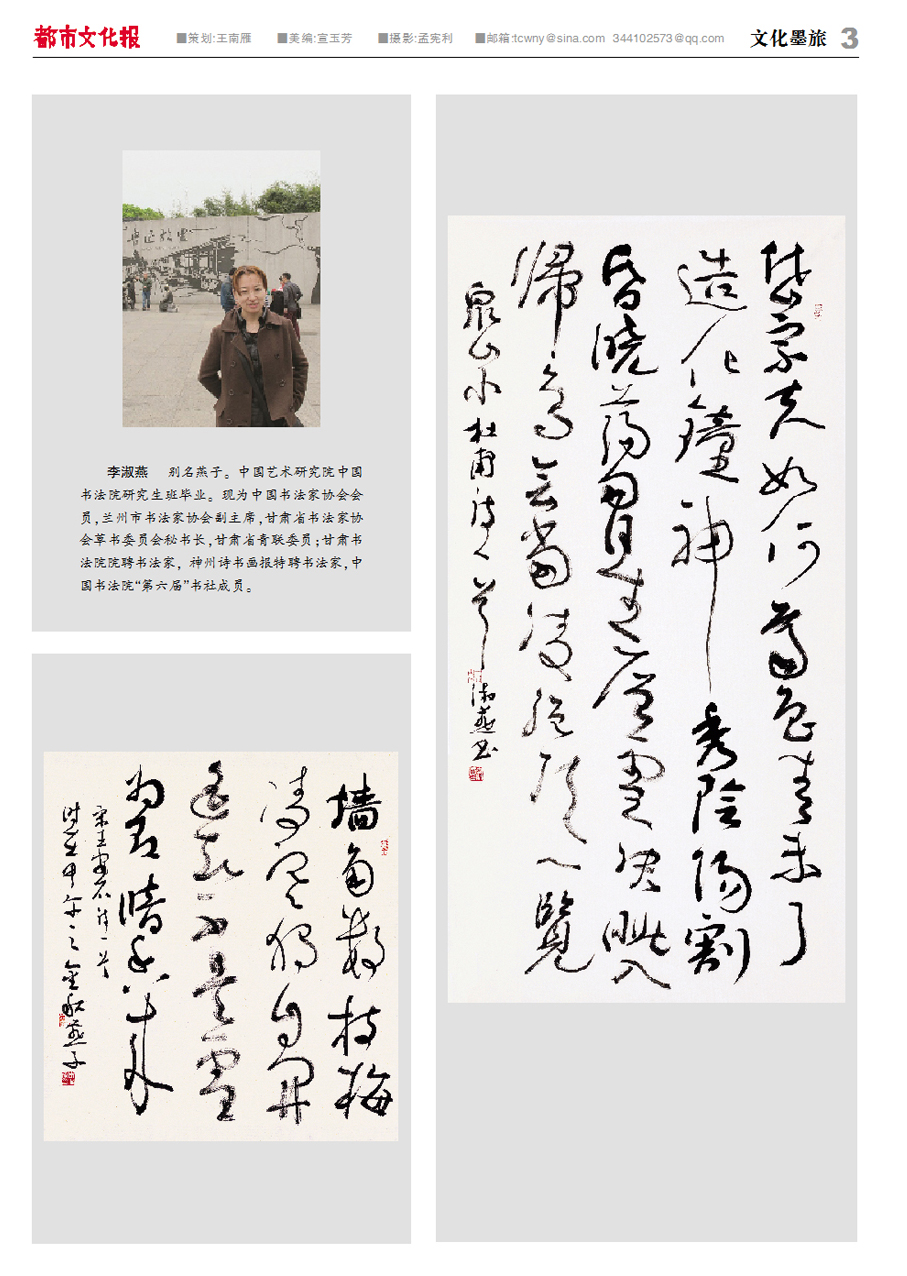 都市文化报
■策划:王南雁 ■美编:宣玉芳 ■摄影:孟宪利 ■邮箱:tcwny@sina.com 344102573@qq.com
文化墨旅 3
李淑燕 别名燕子。中国艺术研究院中国
书法院研究生班毕业。现为中国书法家协会会
员,兰州市书法家协会副主席,甘肃省书法家协
会草书委员会秘书长,甘肃省青联委员;甘肃书
法院院聘书法家，神州诗书画报特聘书法家,中
国书法院“第六届”书社成员。
墙角数枝梅
凌寒独自開
遥知不是雪
为有暗香来
宋王安石诗一首
时在甲午之金秋燕子
岱宗夫如何齊魯青未了
造化鐘神秀陰陽割
昏曉荡胸生层雲决眥入
歸鸟会當凌绝顶一覽
眾山小 杜甫诗一首 淑燕书